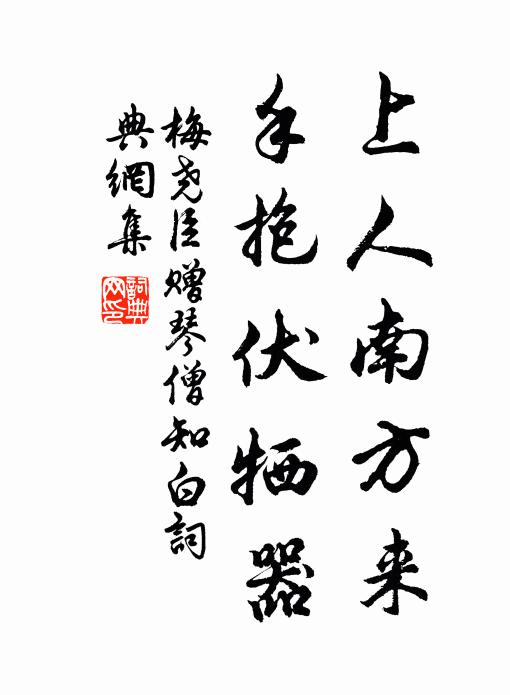 上人南方来
手抱伏牺器
梅尧臣赠琴僧知白詞
典網集
詞典网印